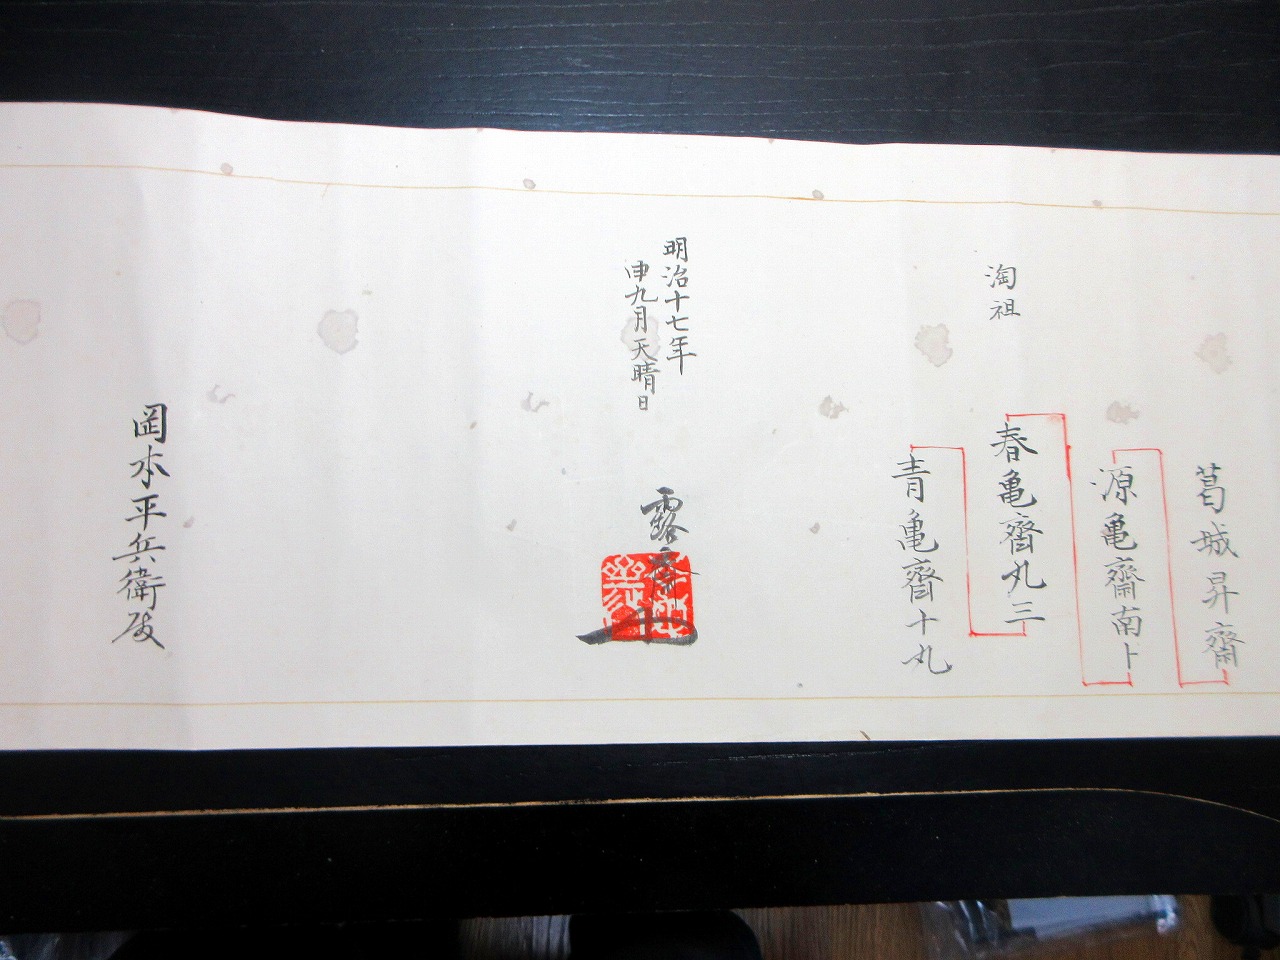 葛城昇齋
源亀齋南卜
淘祖
春亀齋丸三
青亀齋十丸
明治十七年
申九月天晴日
露斎
岡本平兵衛殿